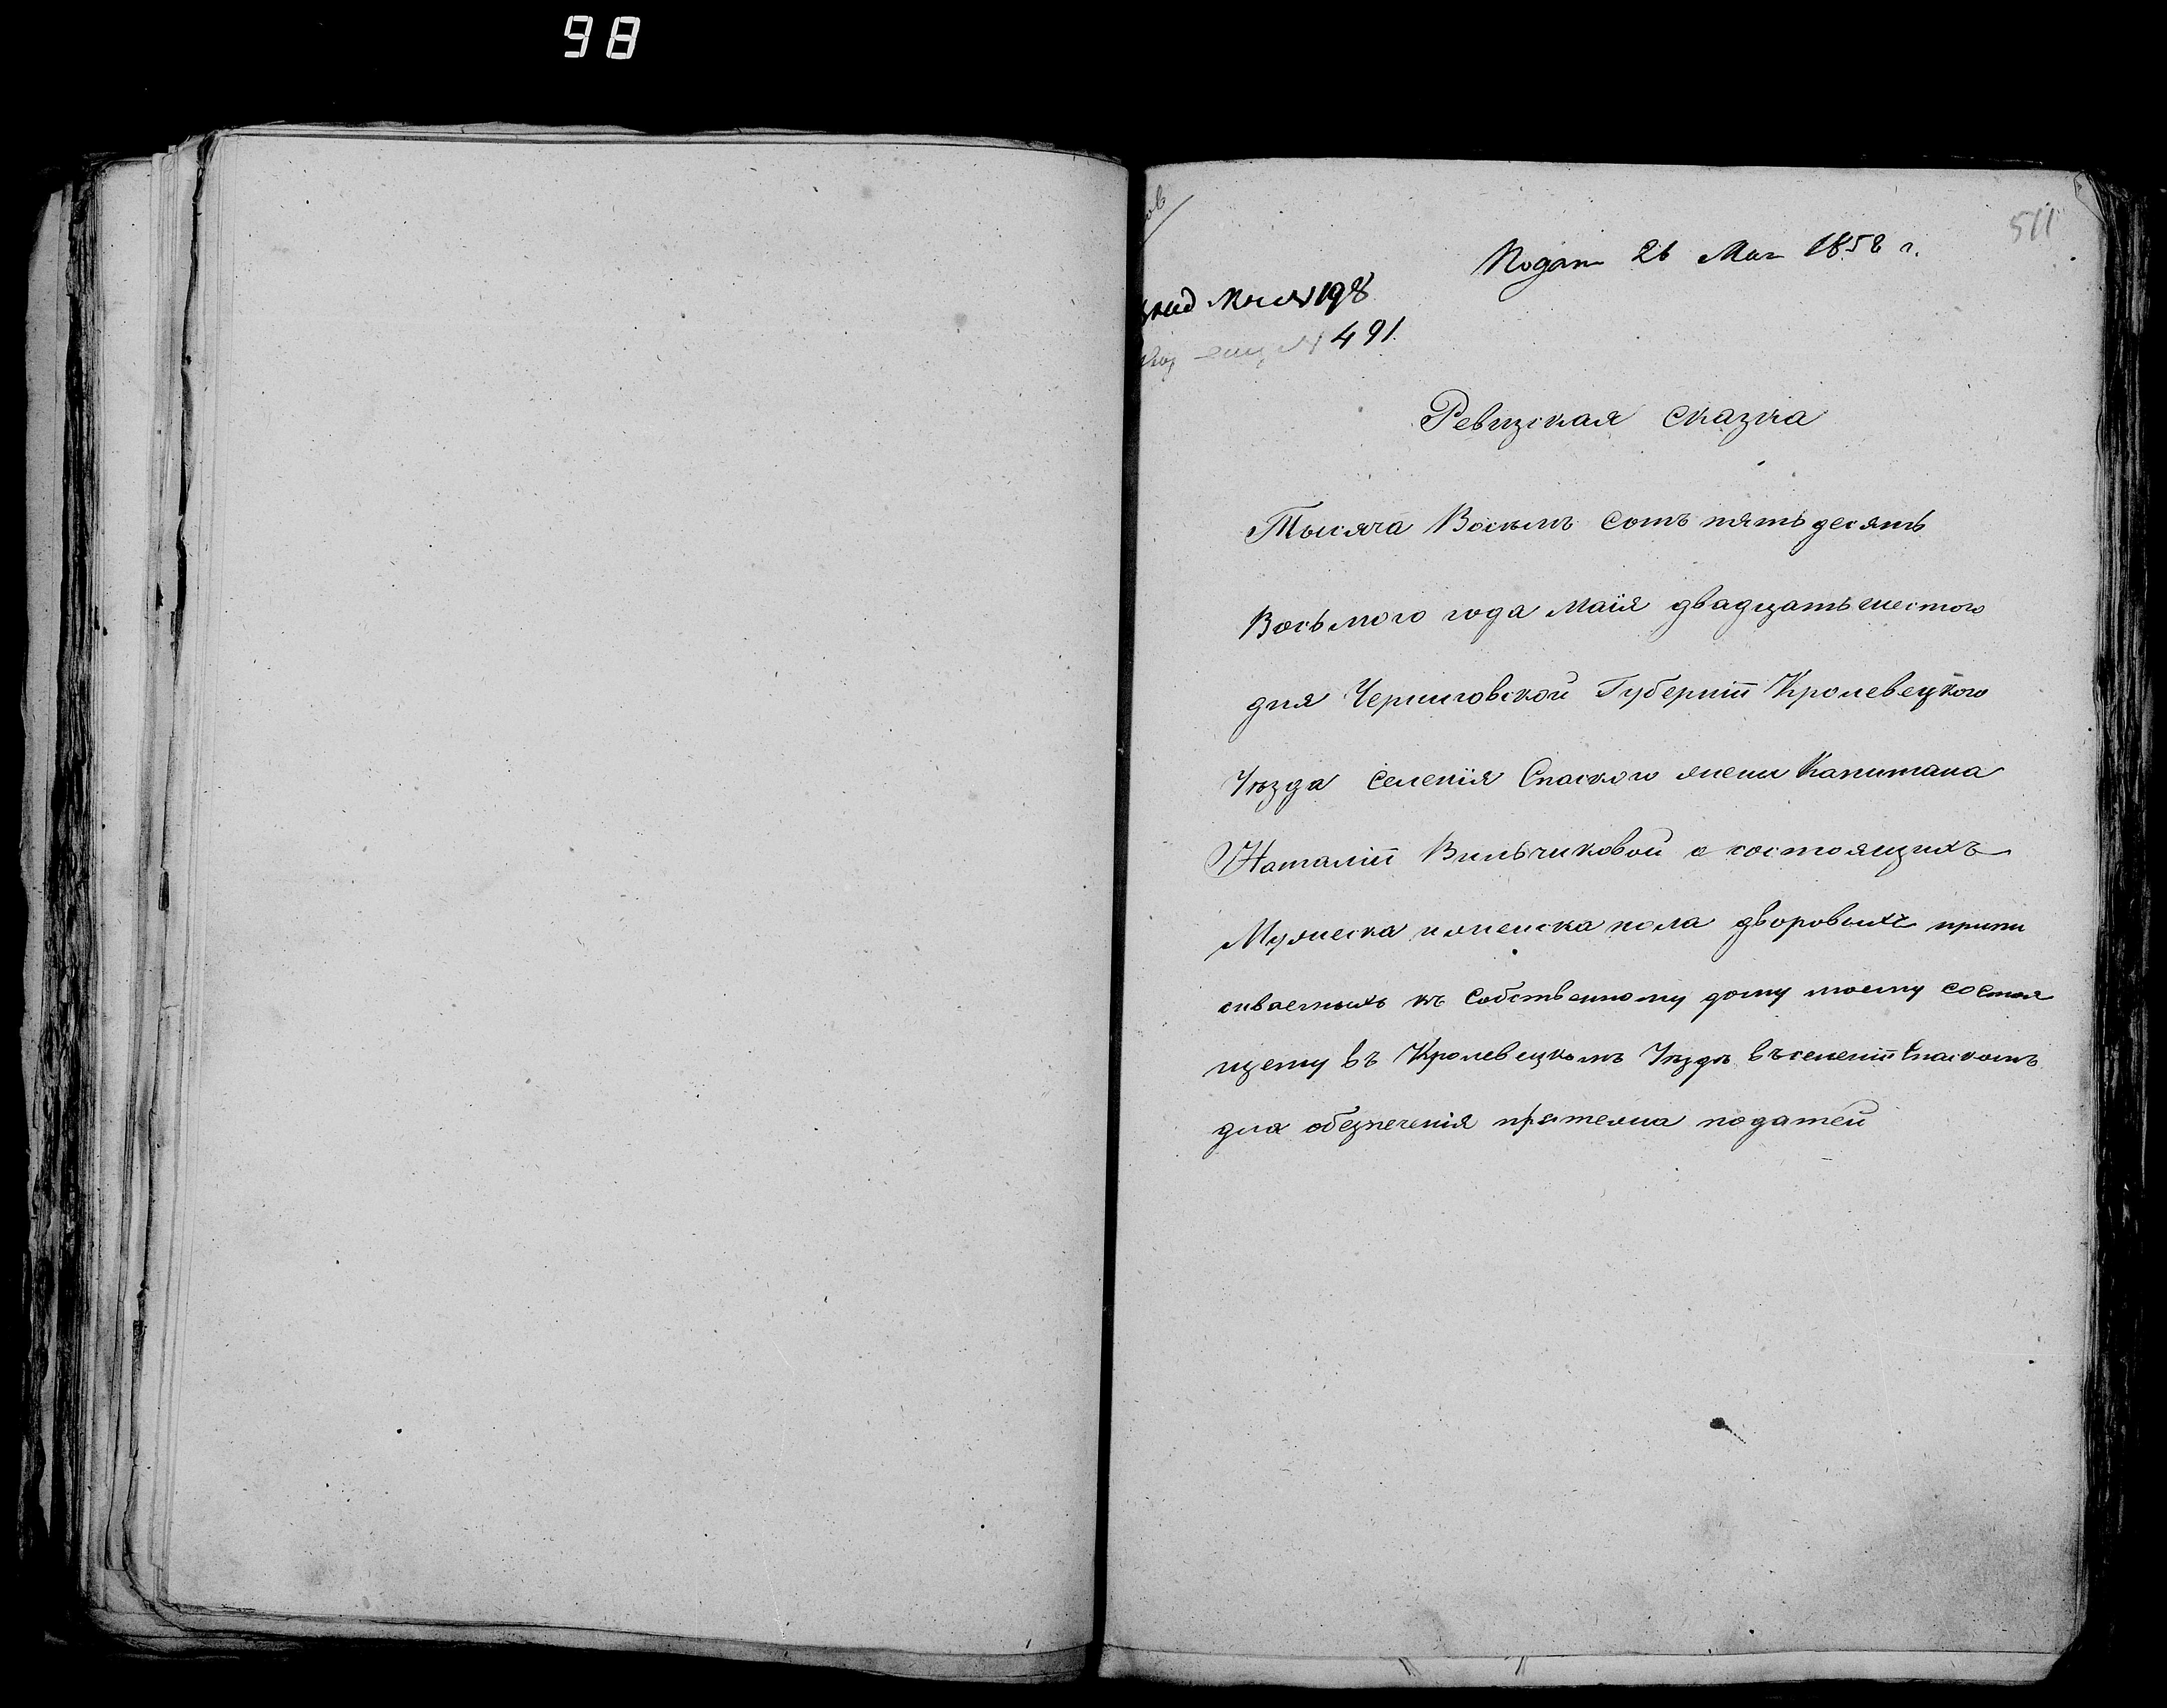 98
511
Подан 26 Мая 1858 г.
№ 198
№ 491.
Ревизская сказка
Тысяча Восемь сотъ пятьдесятъ
Восьмого года Маія двадцать шестого
дня Черниговской Губерніи Кролевецкого
Уѣзда селенія Спаского жены Капитана
Наталіи Вильчиковой о состоящихъ
Мужеска и женска пола дворовыхъ припи
сиваемыхъ къ собственному дому моему состоя
щему въ Кролевецкомъ Уѣздѣ въ селеніи Спаскомъ
для обезпеченія платежа податей